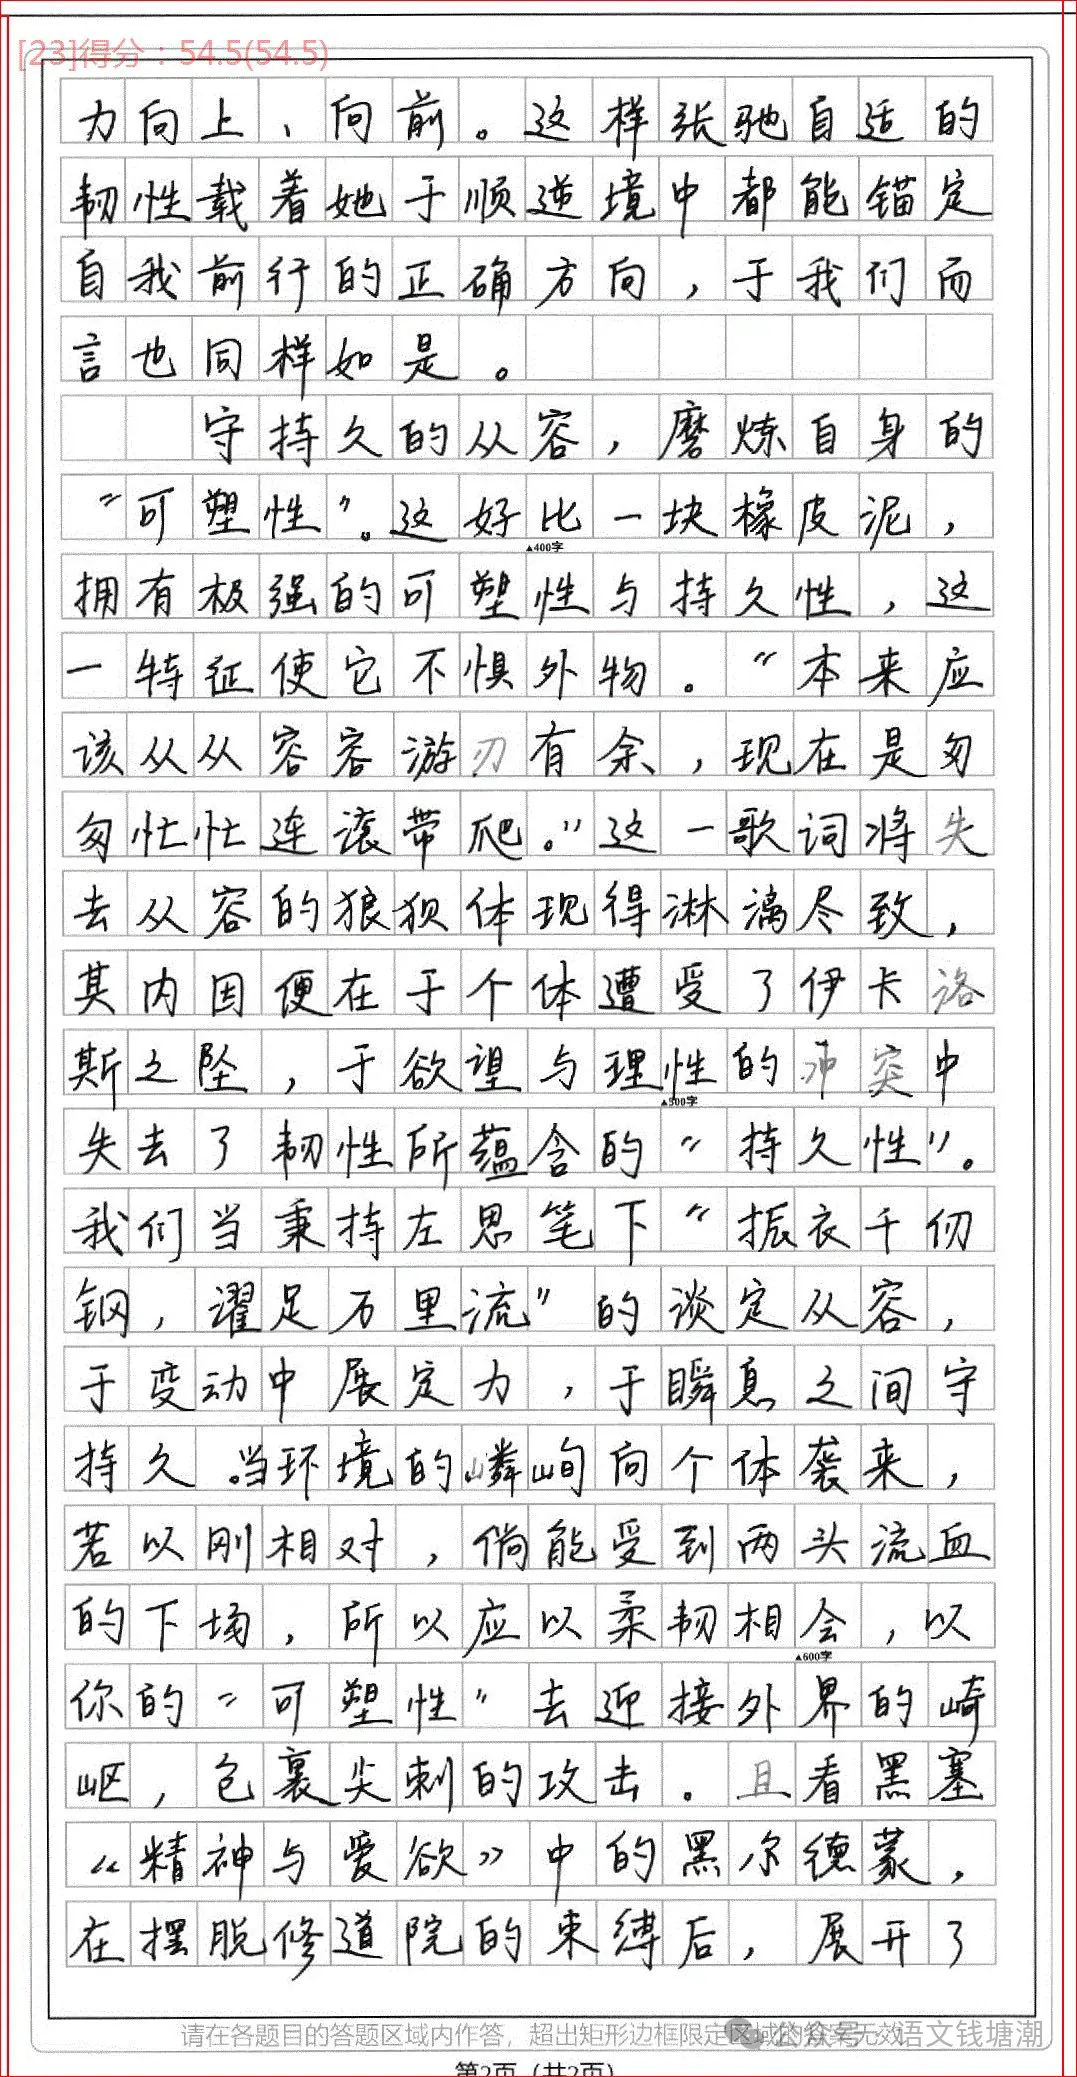 [23]得分：54.5(54.5)
力向上、向前。这样张驰自适的
韧性载着她于顺逆境中都能锚定
自我前行的正确方向，于我们而
言也同样如是。
守持久的从容，磨炼自身的
“可塑性”。这好比一块橡皮泥，
▲400字
拥有极强的可塑性与持久性，这
一特征使它不惧外物。“本来应
该从从容容游刃有余，现在是匆
匆忙忙连滚带爬。”这一歌词将失
去从容的狼狈体现得淋漓尽致，
其内因便在于个体遭受了伊卡洛
斯之坠，于欲望与理性的冲突中
▲500字
失去了韧性所蕴含的“持久性”。
我们当秉持左思笔下“振衣千仞
钢，濯足万里流”的谈定从容，
于变动中展定力，于瞬息之间守
持久。当环境的嶙峋向个体袭来，
若以刚相对，倘能受到两头流血
的下场，所以应以柔韧相会，以
▲600字
你的“可塑性”去迎接外界的崎
岖，包裹尖刺的攻击。且看黑塞
《精神与爱欲》中的黑尔德蒙，
在摆脱修道院的束缚后，展开了
请在各题目的答题区域内作答，超出矩形边框限定区域的答案无效
公众号·语文钱塘潮
第2页（共2页）